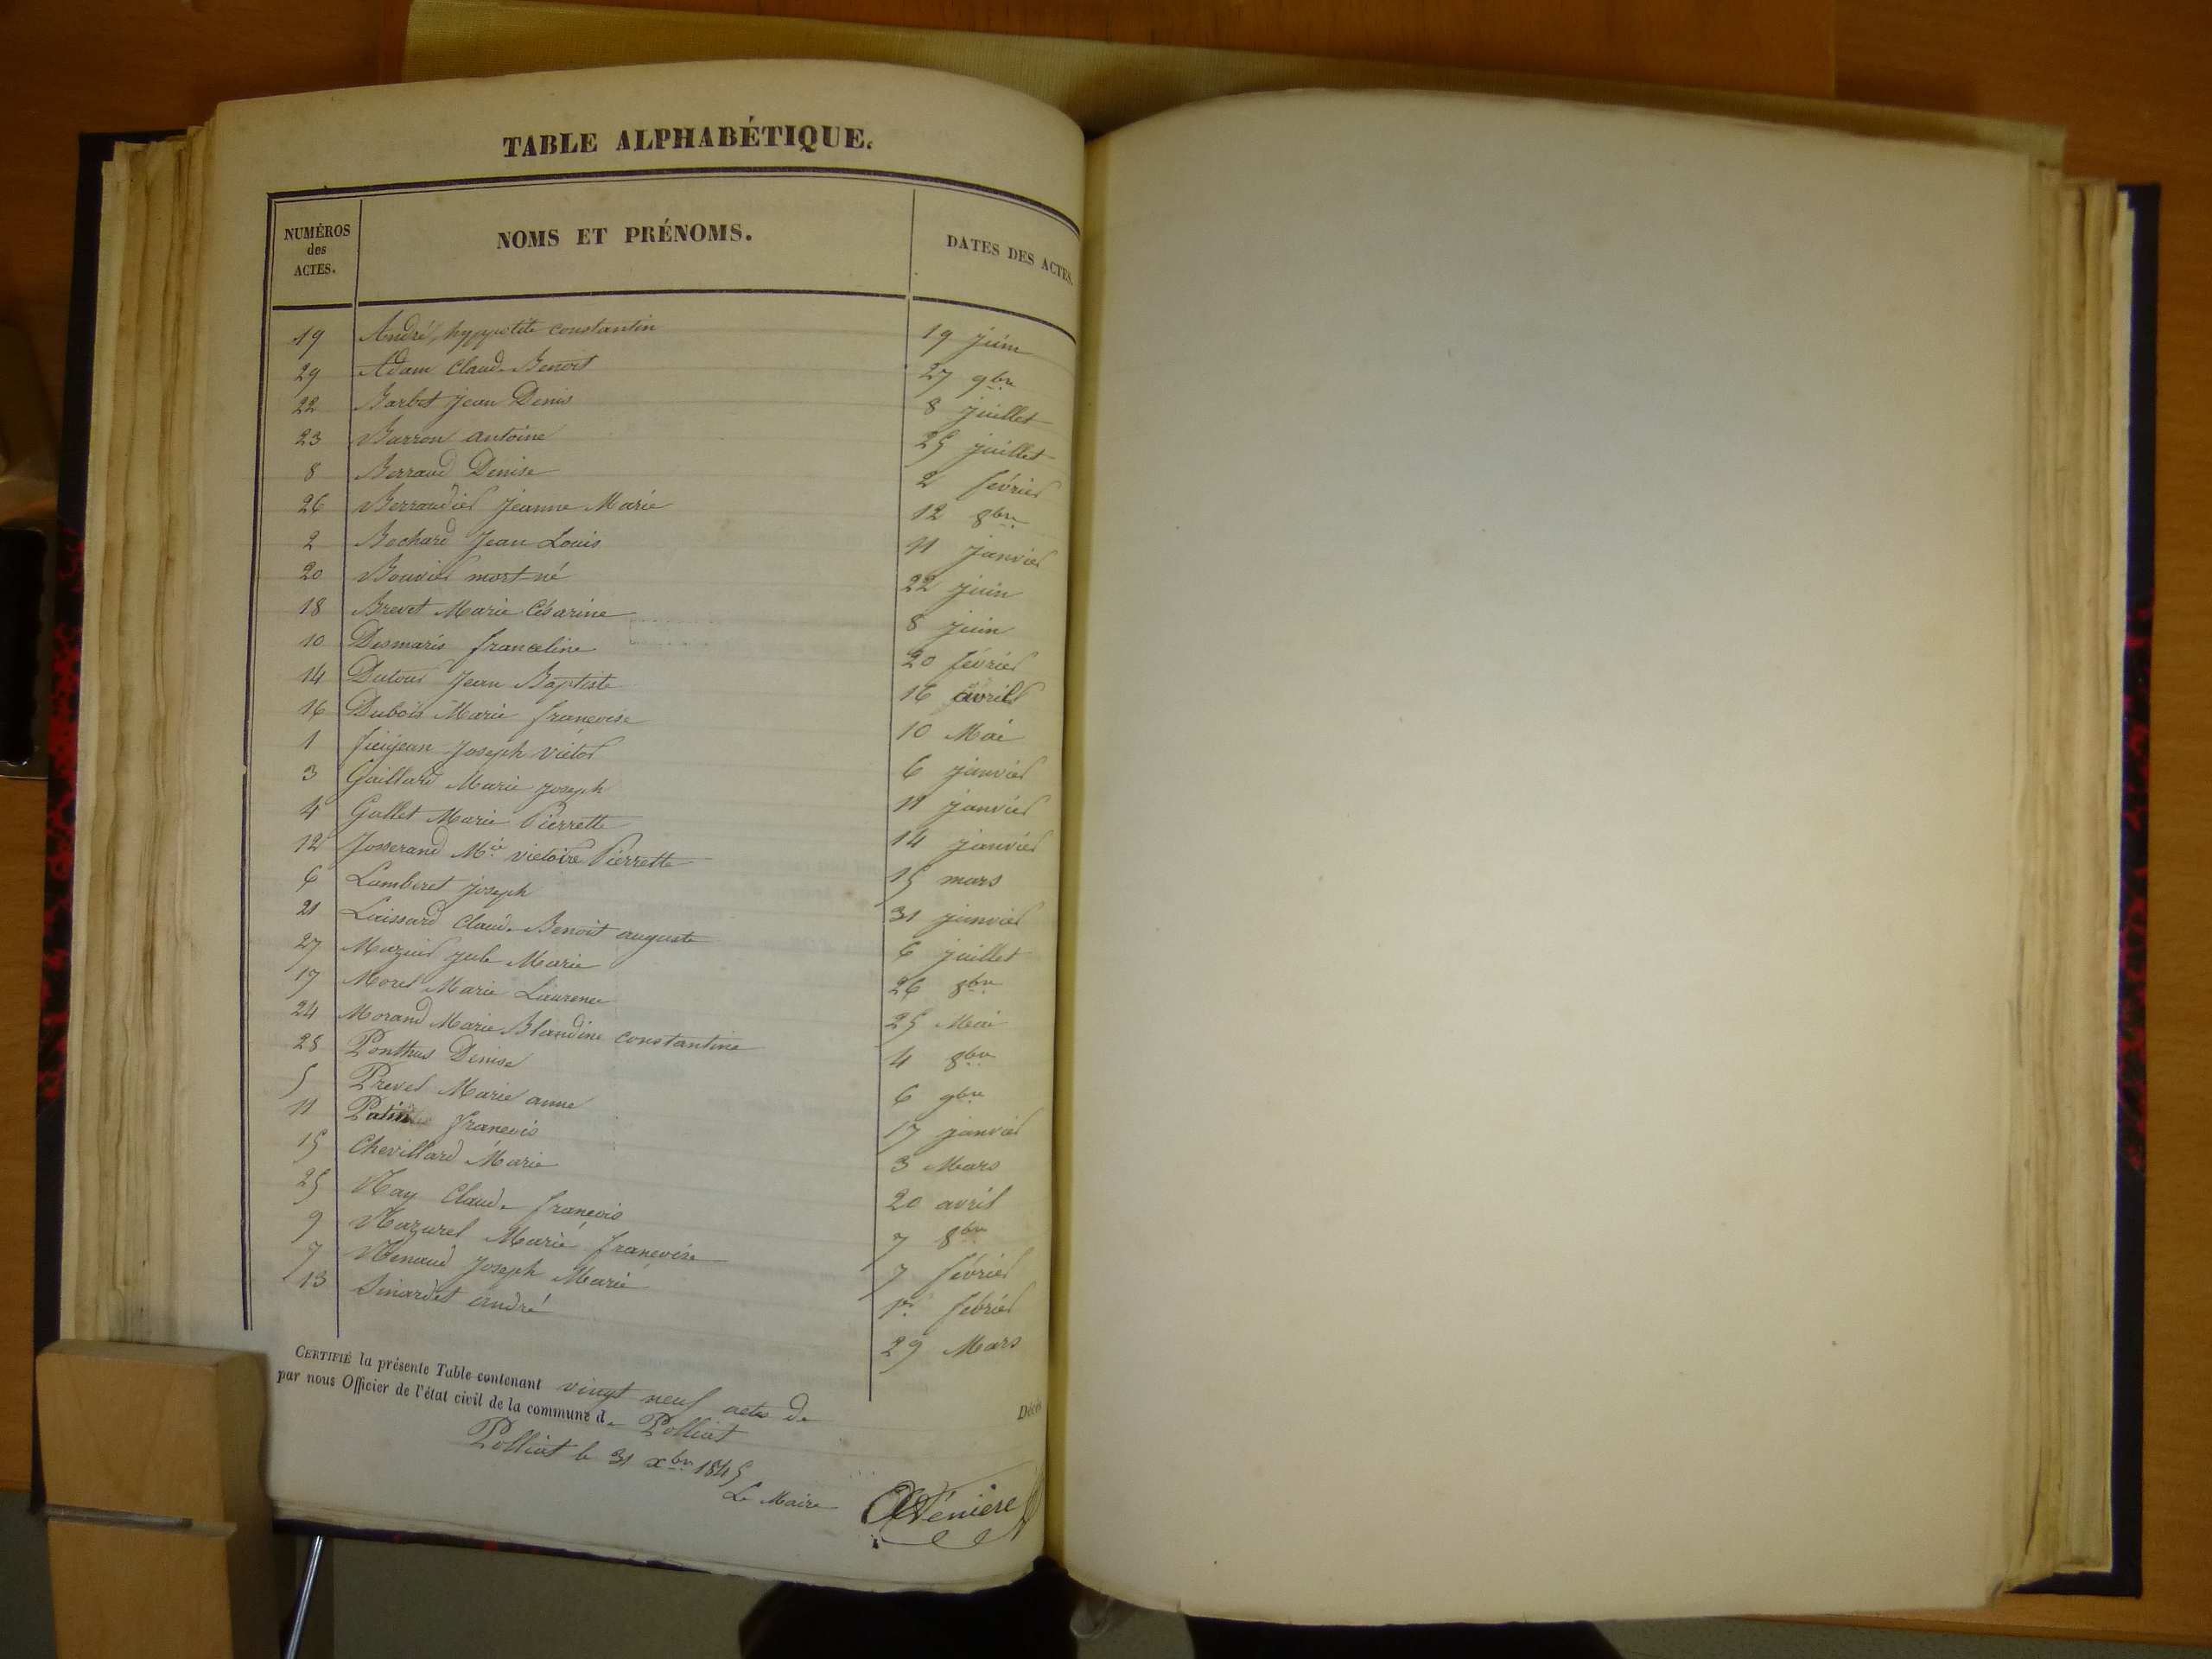 TABLE ALPHABÉTIQUE.
NUMÉROS des ACTES. NOMS ET PRÉNOMS. DATES DES ACTES.
19 André, hyppolite constantin 19 juin
29 Adam Claude Benoit 27 9bre
22 Barbet Jean Denis 8 juillet
23 Barron antoine 25 juillet
8 Berraud Denise 2 février
26 Berraudier Jeanne Marie 12 8bre
2 Bochard Jean Louis 11 janvier
20 Bouvier mort né 22 juin
18 Brevet Marie Césarine 8 juin
10 Desmaris franceline 20 février
14 Dutour Jean Baptiste 16 avril
16 Dubois Marie françoise 10 Mai
1 joseph victor 6 janvier
3 Gaillard Marie joseph 11 janvier
4 Gallet Marie Pierrette 14 janvier
12 Josserand Mie victoire Pierrette 15 mars
6 Lamberet joseph 31 janvier
21 Laissard Claude Benoit auguste 6 juillet
27 Mazuir jule Marie 26 8bre
17 Morel Marie Laurence 25 Mai
24 Morand Marie Blandine constantine 4 8bre
28 Ponthus Denise 6 9bre
5 Prevel Marie anne 17 janvier
11 Patin françois 3 Mars
15 Chevillard Marie 20 avril
25 Ray Claude françois 7 8bre
9 Razurel Marie françoise 7 février
7 Renaud Joseph Marie 1er fébrier
13 Sinardet andré 29 Mars
CERTIFIÉ la présente Table contenant vingt neuf actes de Décès
par nous Officier de l'état civil de la commune de Polliat
Polliat le 31 xbre 1845
Le Maire